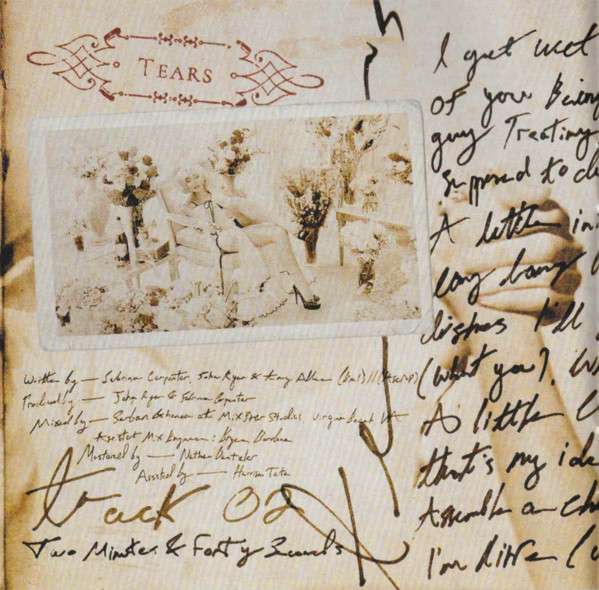 TEARS
Written by — Sabrina Carpenter, John Ryan & Amy Allen (BMI) // (ASCAP)
Produced by — John Ryan & Sabrina Carpenter
Mixed by — Serban Ghenea at MixStar Studios, Virginia Beach, VA
Assistant Mix Engineer: Bryce Bordone
Mastered by — Nathan Dantzler
Assisted by — Harrison Tate
track 02
Two Minutes & Forty Seconds
I get wet
of you Being
guy Treating
supposed to
A little
long
dishes I'll
(what you).
A little
that's my
Assemble a
I'm like